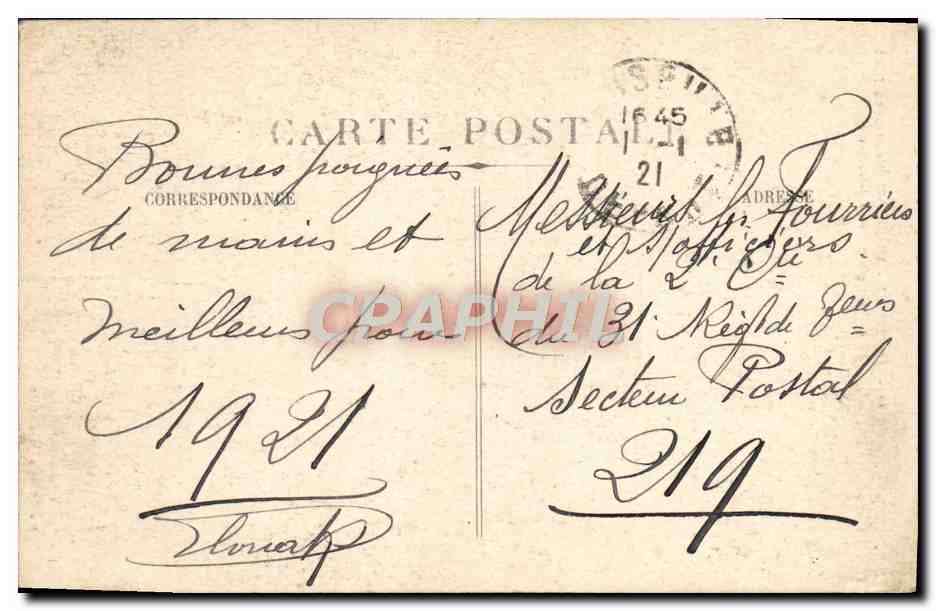 CARTE POSTALE
16 45
1 - 1
21
CORRESPONDANCE
ADRESSE
Bonnes poignées
de mains et
meilleurs pour
1921
Messieurs les Fourriers
et S/officiers
de la 2e Cie
du 31e Régt de
Secteur Postal
219
CRAPHIL